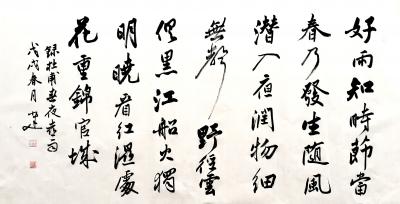 好雨知時節當
春乃發生随風
潛入夜潤物細
無聲野徑雲
俱黑江船火獨
明曉看紅濕處
花重錦官城
録杜甫春夜喜雨
戊戌春月